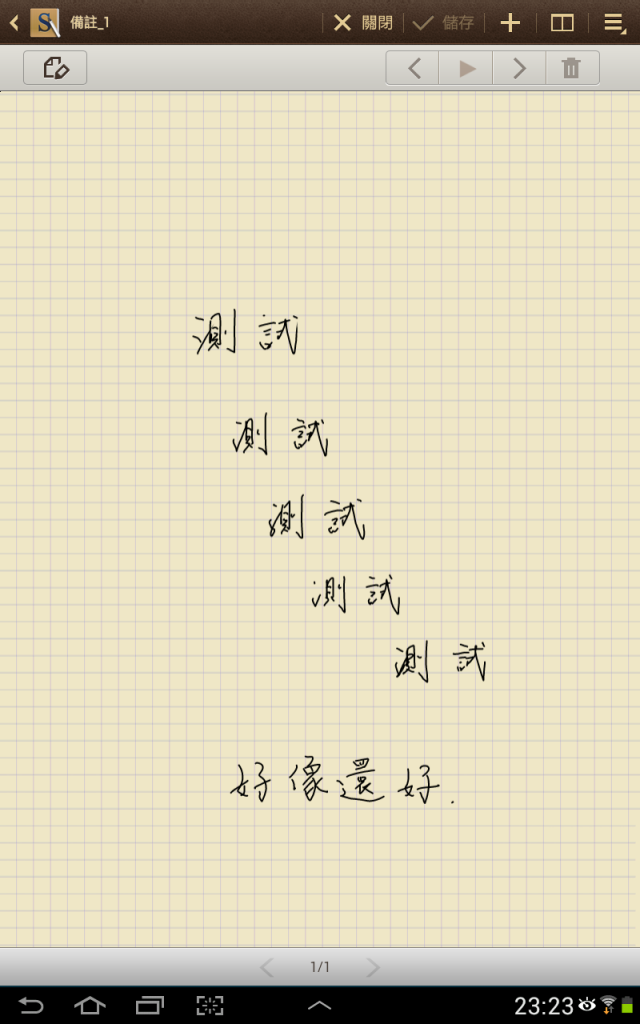 備註_1 關閉 儲存
測試
測試
測試
測試
測試
好像還好.
1/1
23:23